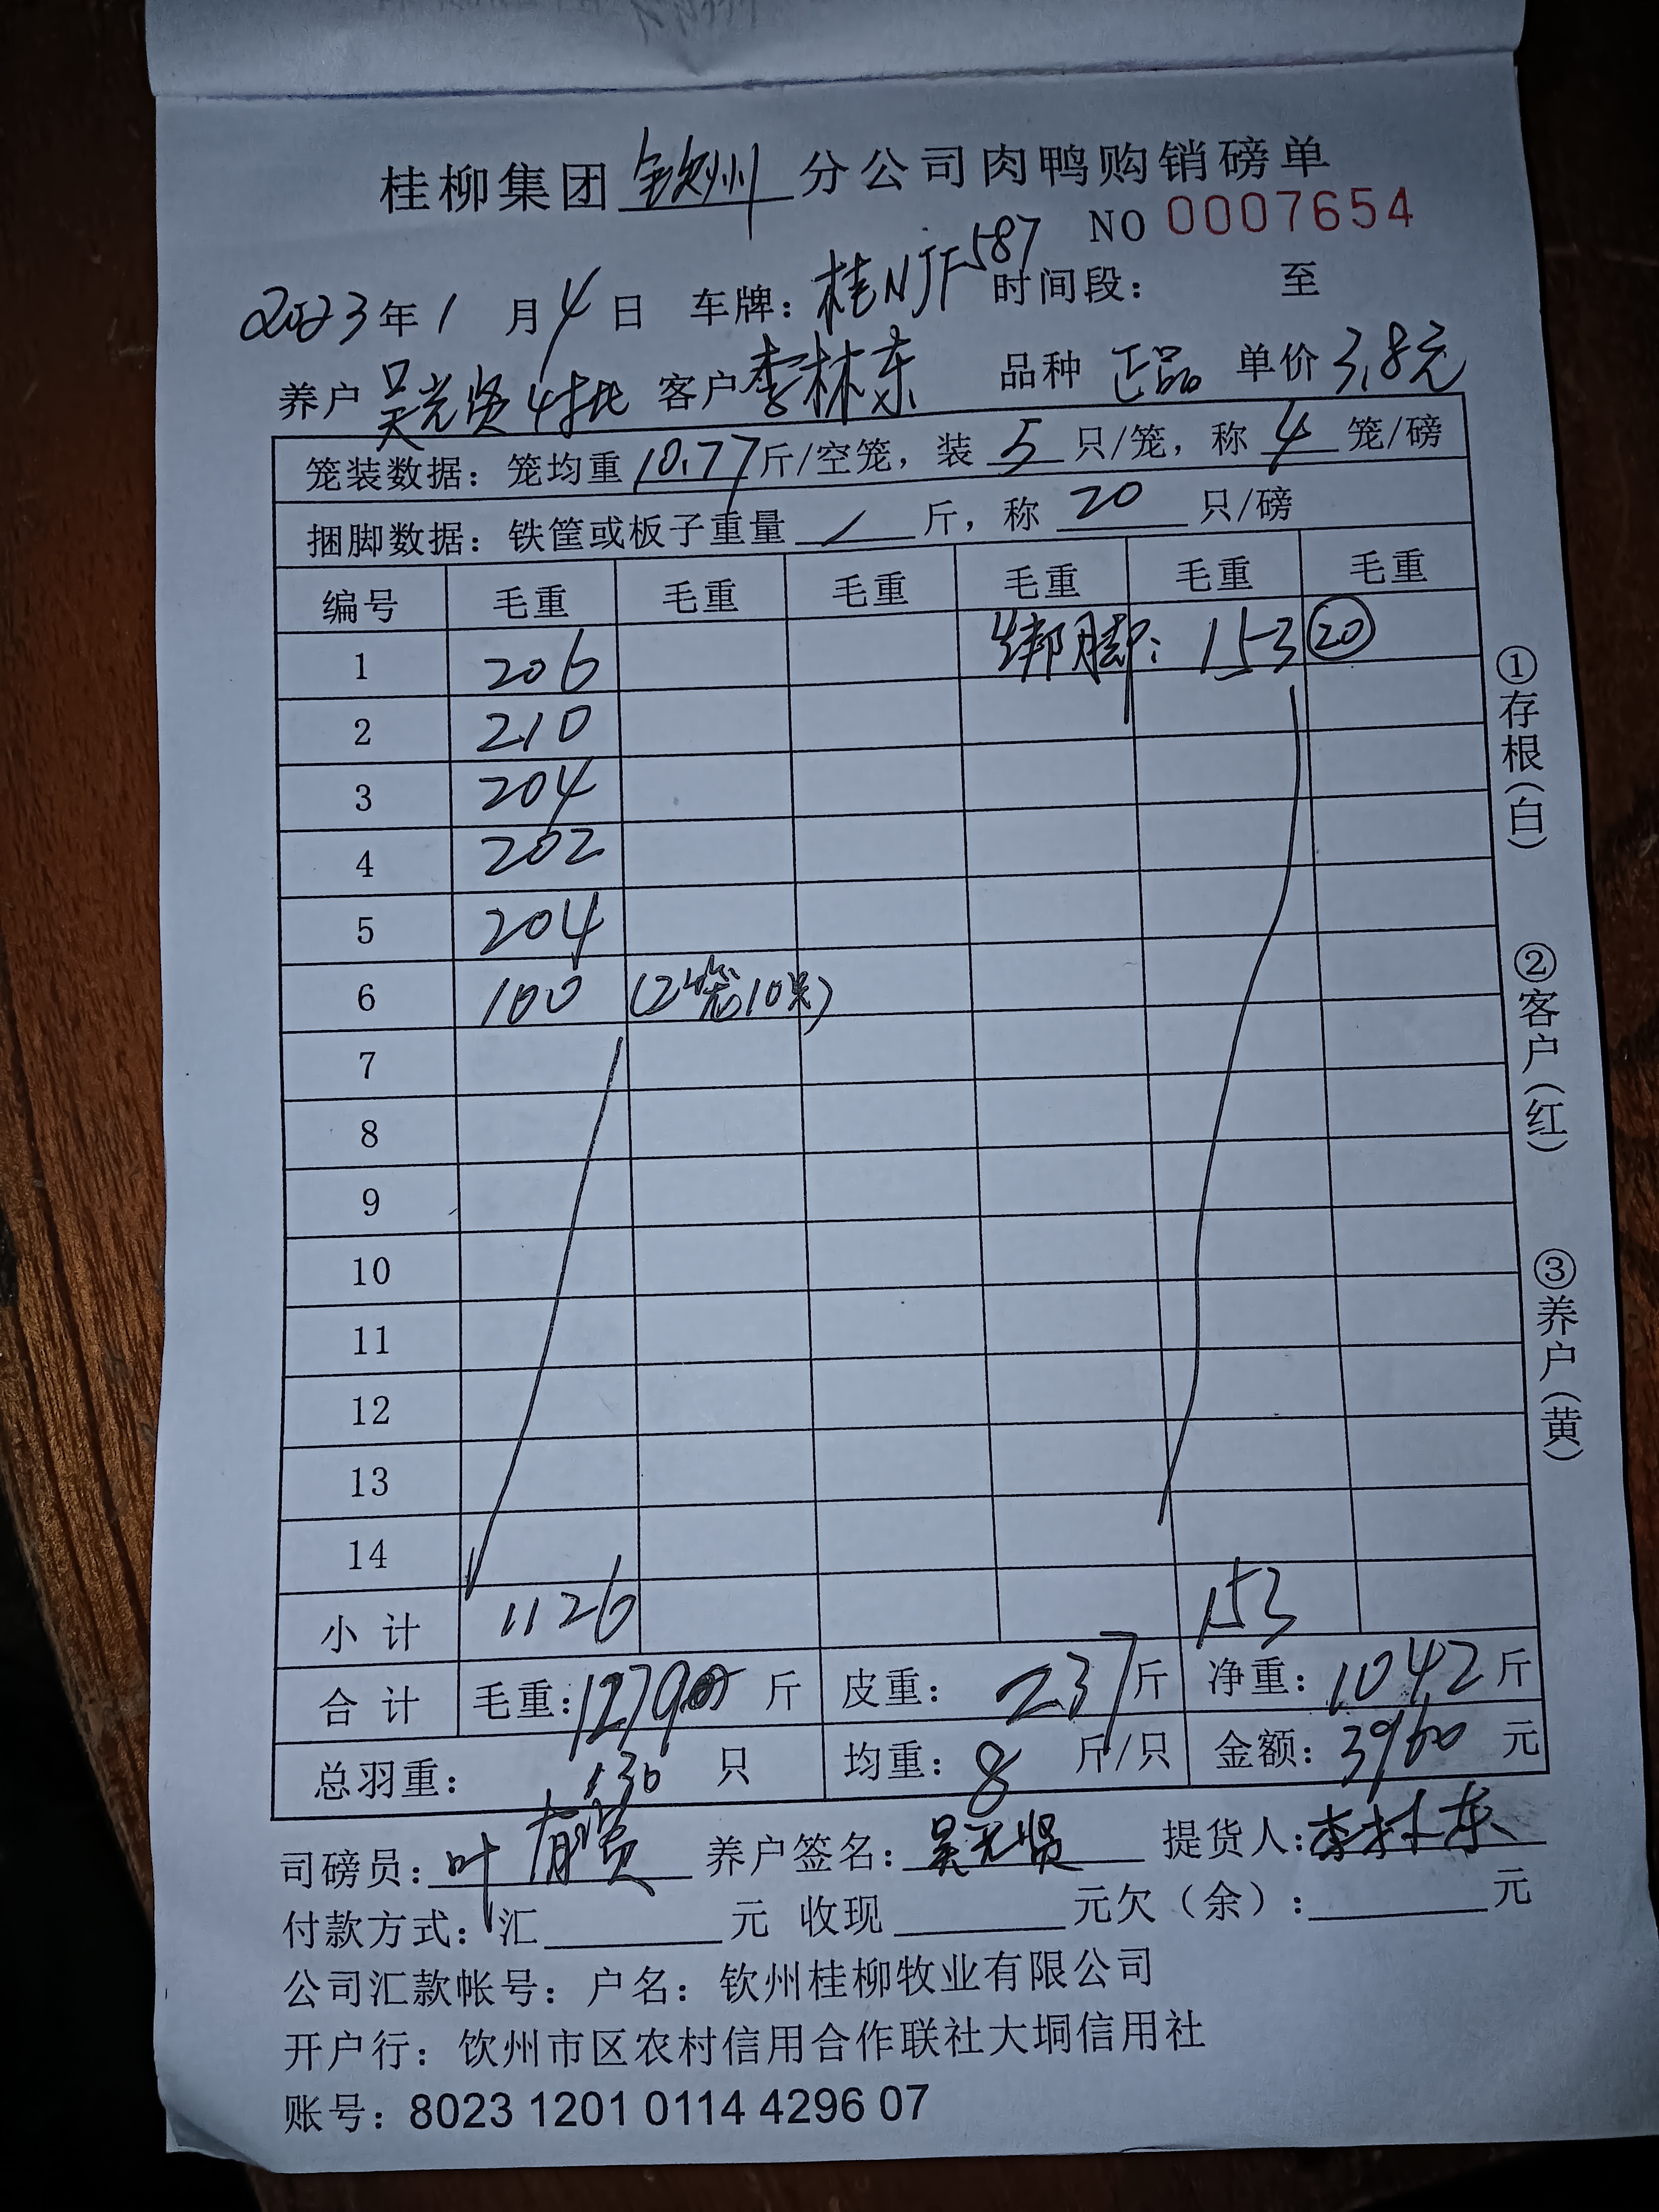 桂柳集团 钦州 分公司肉鸭购销磅单
NO 0007654
2023年1月4日 车牌：桂NJF587 时间段： 至
养户 吴光贤4批 客户 李林东 品种 正品 单价 3.8元
笼装数据：笼均重 10.77 斤/空笼，装 5 只/笼，称 4 笼/磅
捆脚数据：铁筐或板子重量 / 斤，称 20 只/磅
编号 毛重 毛重 毛重 毛重 毛重 毛重
1 206 绑脚： 153 20
2 210
3 204
4 202
5 204
6 100 (2笼10只)
7
8
9
10
11
12
13
14
小计 1126 153
合计 毛重：1279 斤 皮重：237斤 净重：1042斤
总羽重：130 只 均重：8 斤/只 金额：3960 元
司磅员：叶 养户签名：吴光贤 提货人：李林东
付款方式：汇 元 收现 元欠（余）： 元
公司汇款帐号：户名：钦州桂柳牧业有限公司
开户行：钦州市区农村信用合作联社大垌信用社
账号：8023 1201 0114 4296 07
①存根（白）
②客户（红）
③养户（黄）